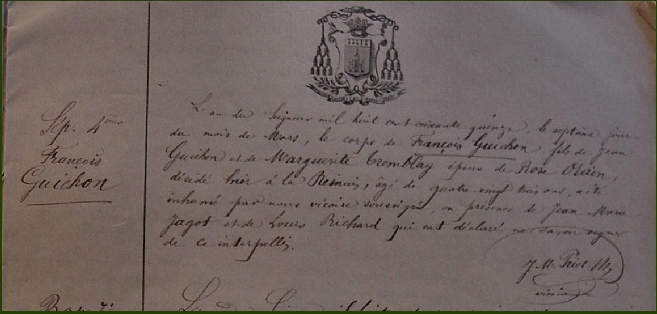 Sép. 4ème
François
Guichon
L'an du Seigneur mil huit cent soixante quinze, le septième jour
du mois de Mars, le corps de François Guichon, fils de Jean
Guichon et de Marguerite Tremblay époux de Rose
décédé hier à la Remais, âgé de quatre vingt trois ans, a été
inhumé par nous vicaire soussigné, en présence de Jean Marie
Jagot et de Louis Richard qui ont déclaré ne savoir signer
de ce interpellés.
J. M.
vicaire